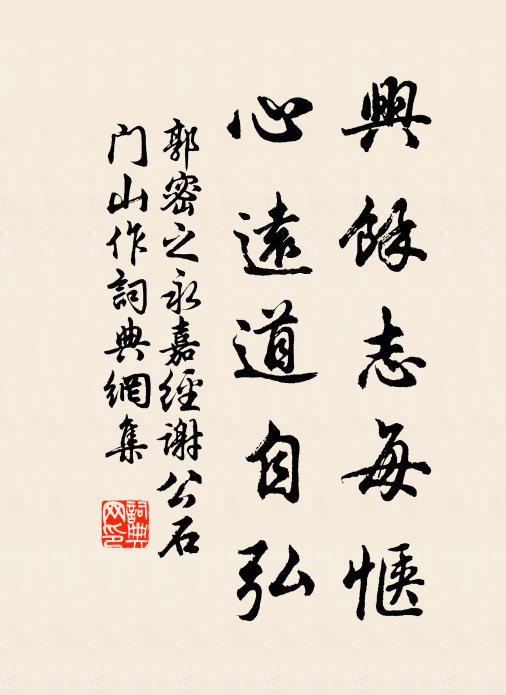 興餘志每愜
心遠道自弘
郭密之永嘉經谢公石
门山作詞典網集
詞典
网印